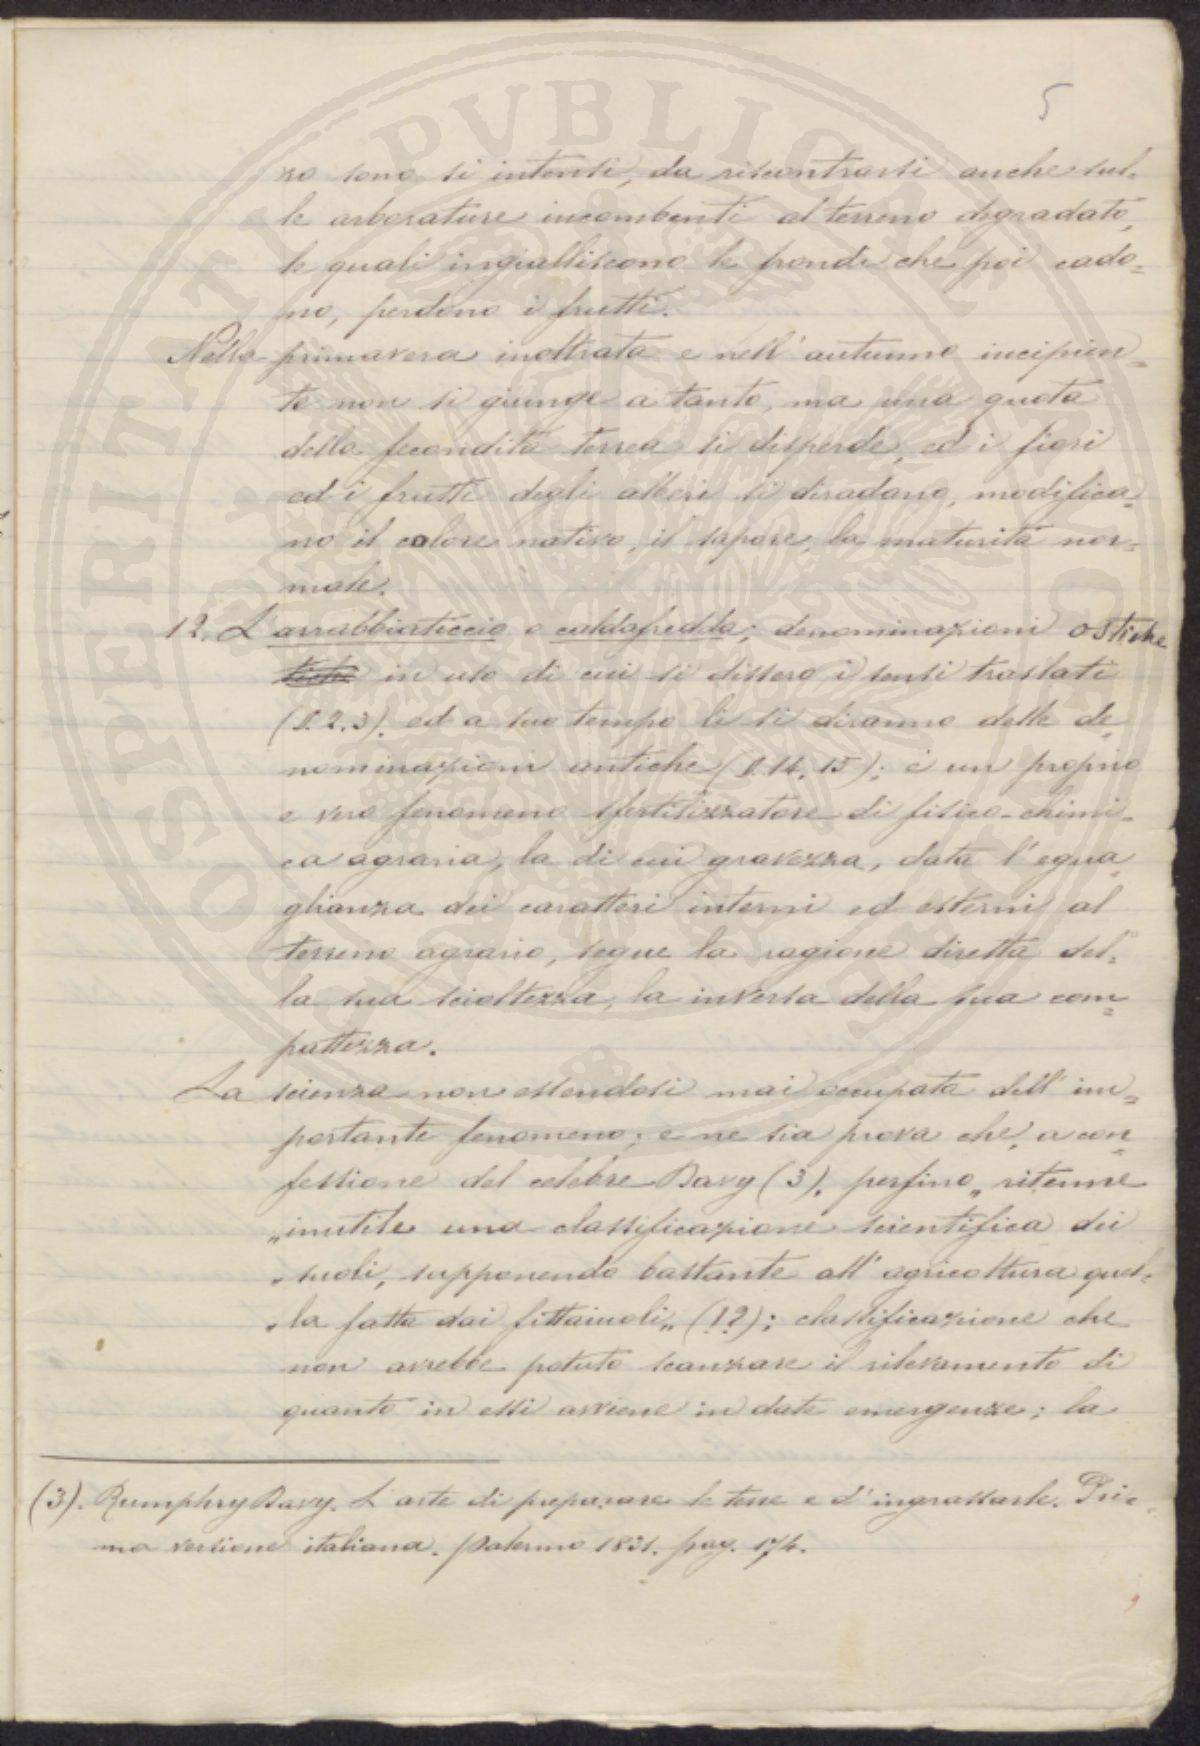 5
zo sono sì intensi, da riscontrarsi anche sul-
le arborature incombenti al terreno degradato,
le quali ingialliscono le frondi che poi cado-
no, perdono i frutti.
Nella primavera inoltrata e nell'autunno incipien-
te non si giunge a tanto, ma una quota
della fecondità terrea si disperde, ed i fiori
ed i frutti degli alberi si diradano, modifica-
no il colore nativo, il sapore, la maturità nor-
male.
12. L'arrabbiaticcio o caldafredda; denominazioni ostiche
tiche in uso di cui si dissero i sensi traslati
(§. 2. 3). ed a suo tempo li si diranno delle de-
nominazioni antiche (§. 14. 15); è un proprio
e vero fenomeno sfertilizzatore di fisico-chimi-
ca agraria, la di cui gravezza, data l'egua-
glianza dei caratteri interni ed esterni al
terreno agrario, segue la ragione diretta del-
la sua scioltezza, la inversa della sua com-
pattezza.
La scienza non essendosi mai occupata dell'im-
portante fenomeno; e ne sia prova che, a con-
fessione del celebre Davy (3), perfino „ ritenne
„ inutile una classificazione scientifica dei
„ suoli, supponendo bastante all'agricoltura quel-
„ la fatta dai fittaiuoli „ (!?); classificazione che
non avrebbe potuto scanzare il rilevamento di
quanto in essi avviene in date emergenze; la
(3). Rumphry Davy. L'arte di preparare le terre e d'ingrassarle. Pri-
ma versione italiana. Palermo 1831. pag. 174.
PROSPERITATI PVBLICAE AVGENDAE